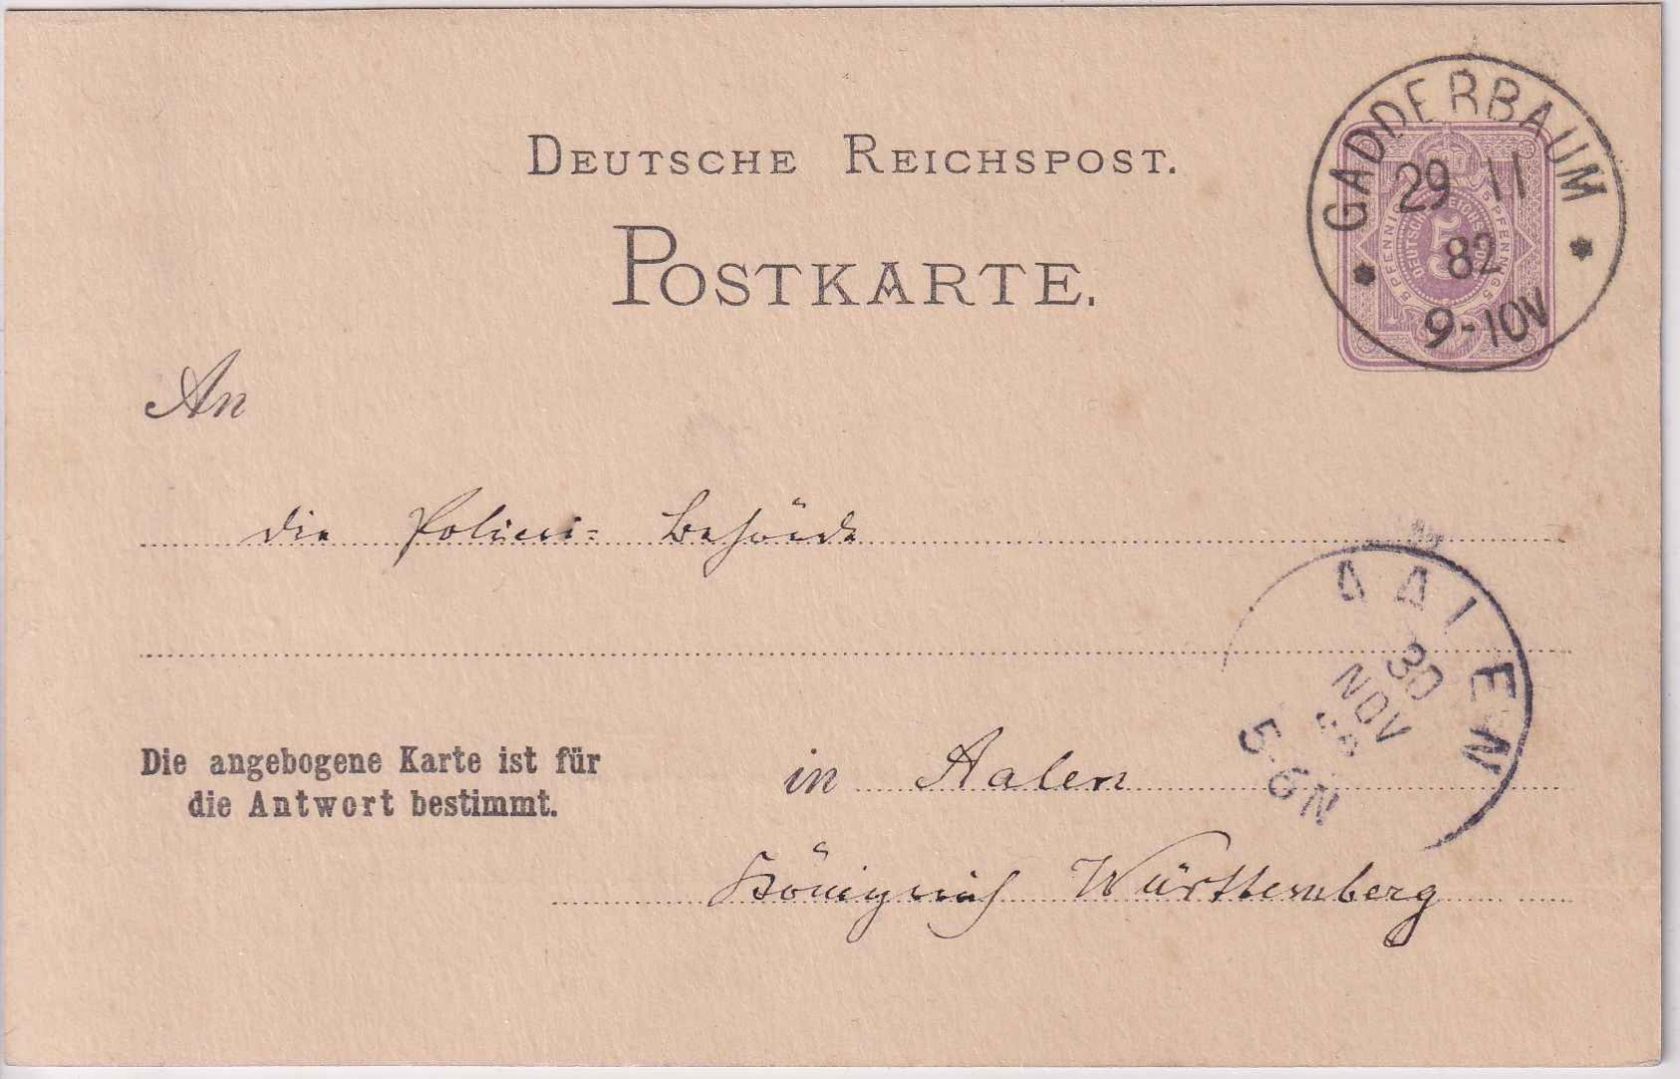 DEUTSCHE REICHSPOST.
POSTKARTE.
GADDERBAUM
29 11
82
9-10V
5 PFENNIG 5 PFENNIG 5
DEUTSCHE REICHSPOST
5
An
die Polizei= Behörde
AALEN
30
NOV
5-6N
Die angebogene Karte ist für
die Antwort bestimmt.
in Aalen
Königreich Württemberg